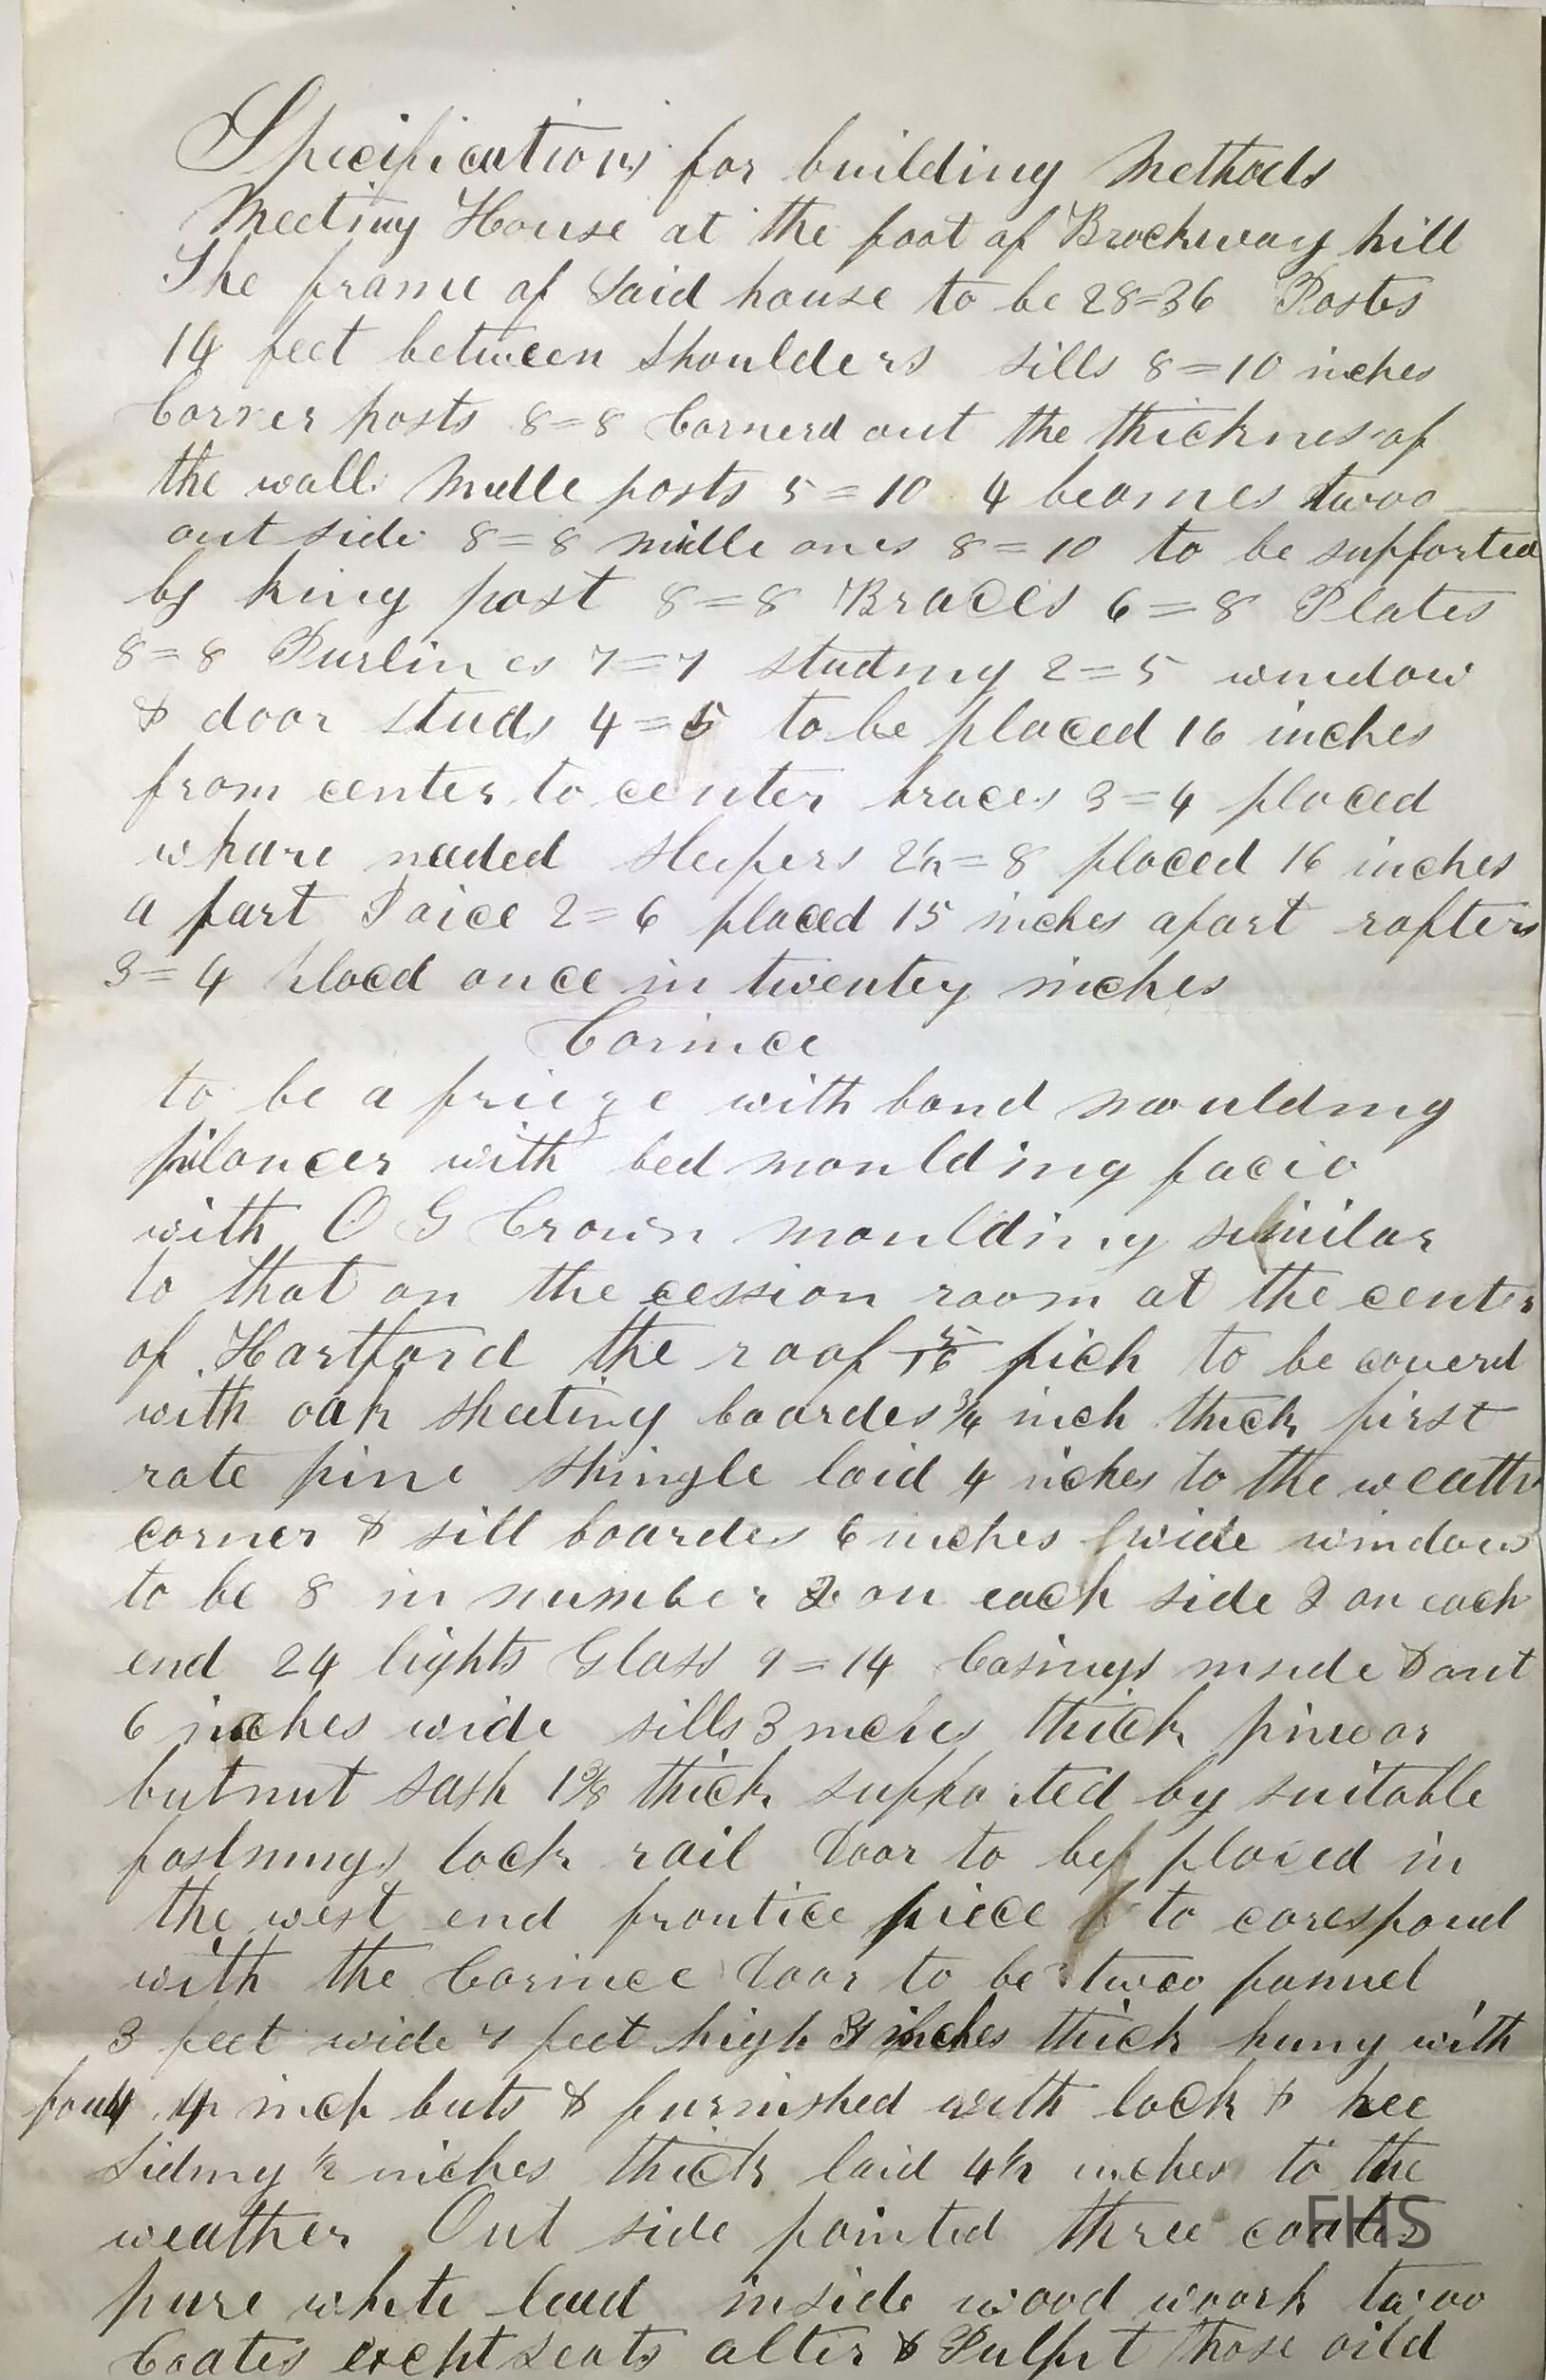 Specifications for building Methods
Meeting House at the foot of Brockway hill
The frame of Said house to be 28=36 Postes
14 feet between Shoulders sills 8=10 inches
Corner posts 8=8 Cornerd out the thicknes of
the wall midle posts 5=10 4 beames twoo
out side 8=8 midle ones 8=10 to be supported
by king post 8=8 Braces 6=8 Plates
8=8 Purlines 7=7 studing 2=5 window
& door studs 4=5 to be placed 16 inches
from center to center braces 3=4 placed
whare needed Sleepers 2½=8 placed 16 inches
a part Joice 2=6 placed 15 inches apart rafters
3=4 placed once in twentey inches
Cornice
to be a frieze with band moulding
plancer with bed moulding facia
with O G Crown moulding similar
to that on the cession room at the center
of Hartford the roof 5/16 pich to be coverd
with oak sheeting boardes ¾ inch thick first
rate pine shingle laid 4 inches to the weather
corner & sill boardes 6 inches wide windows
to be 8 in number 2 on each side 2 on each
end 24 lights Glass 9=14 Casings inside & out
6 inches wide sills 3 inches thick pine or
butnut sash 1⅜ thick supported by suitable
fastnings lock rail door to be placed in
the west end frontice piece to corespond
with the Cornice door to be twoo pannel
3 feet wide 7 feet high inches thick hung with
four 4 inch buts & furnished with lock & kee
Siding ½ inches thick laid 4½ inches to the
weather Out side painted three coates
pure white lead inside wood woork twoo
Coates except seats alter & Pulpit those oild
FHS